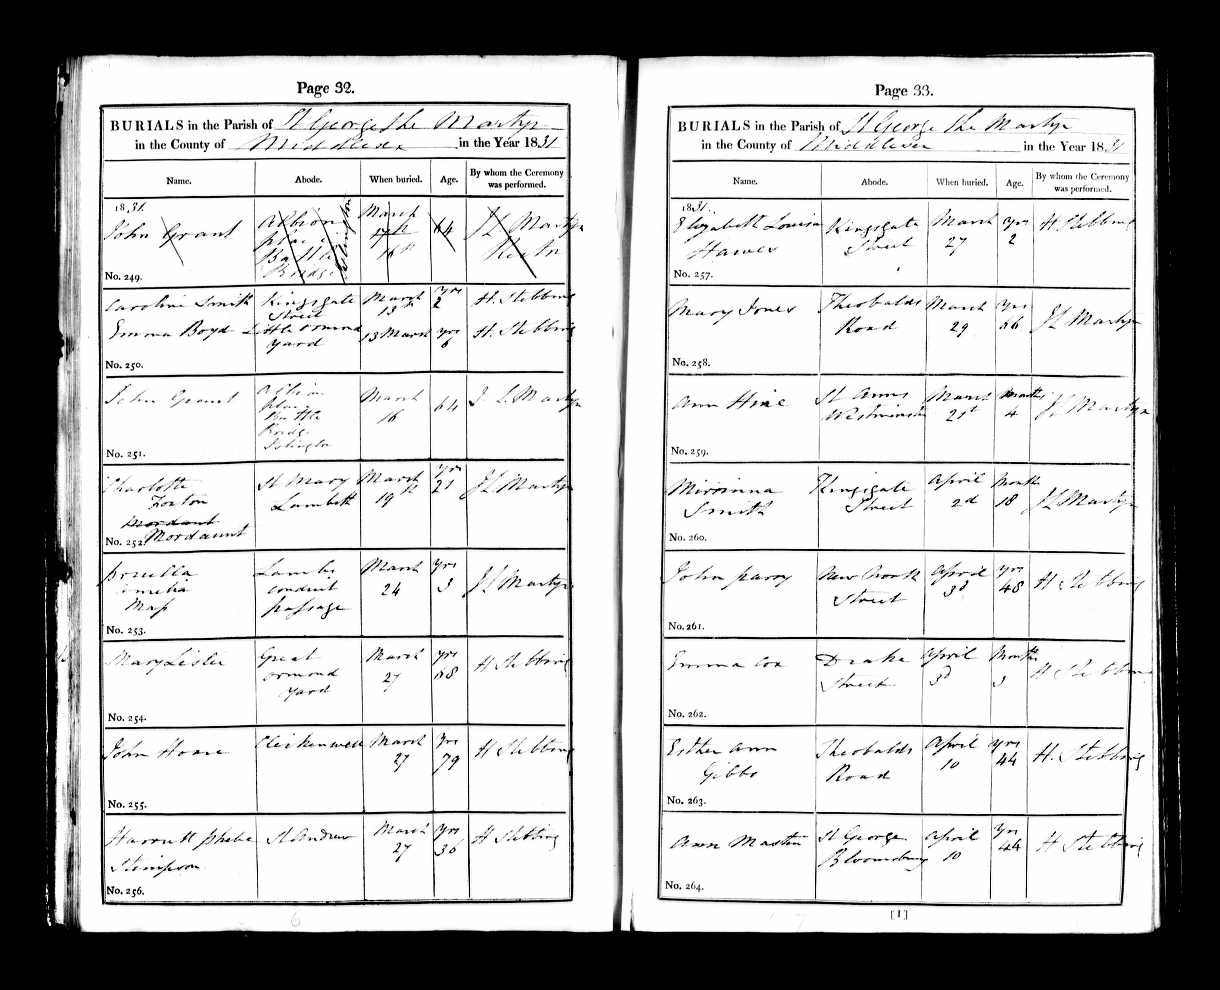 Page 32.
BURIALS in the Parish of St George the Martyr
in the County of Middlesex in the Year 1831
Name. Abode. When buried. Age. By whom the Ceremony was performed.
1831.
John Grant Albion place Battle Bridge Islington March 17th 16th 64 J L Martyn Rector
No. 249.
Caroline Smith Kingsgate Street March 13th yrs 2 H. Stebbing
Emma Boyd Little Ormond yard 13 March yrs 6 H. Stebbing
No. 250.
John Grant Albion place Battle Bridge Islington March 16 64 J L Martyn
No. 251.
Charlotte Foxton Mordant Mordaunt St Mary Lambeth March 19th yrs 21 J L Martyn
No. 252.
Prucilla Amelia Map Lambs conduit passage March 24 yrs 3 J L Martyn
No. 253.
Mary Lister Great Ormond yard March 27 yrs 58 H Stebbing
No. 254.
John Hoare Clerkenwell March 27 yrs 79 H Stebbing
No. 255.
Harriett Phebe Stimpson St Andrew March 27 yrs 36 H Stebbing
No. 256.
Page 33.
BURIALS in the Parish of St George the Martyr
in the County of Middlesex in the Year 1831
Name. Abode. When buried. Age. By whom the Ceremony was performed.
1831.
Elizabeth Louisa Hawes Kingsgate Street March 27 yrs 2 H Stebbing
No. 257.
Mary Jones Theobalds Road March 29 yrs 56 J L Martyn
No. 258.
Ann Hine St Anns Westminster March 31st months 4 J L Martyn
No. 259.
Smith Kingsgate Street April 2d Month 18 J L Martyn
No. 260.
John Parry New North Street April 3d yrs 48 H Stebbing
No. 261.
Emma Cox Drake Street April 3d Months 3 H Stebbing
No. 262.
Esther Ann Gibbs Theobalds Road April 10 yrs 44 H. Stebbing
No. 263.
Ann Mastin St George Bloomsbury April 10 yrs 44 H Stebbing
No. 264.
[I]